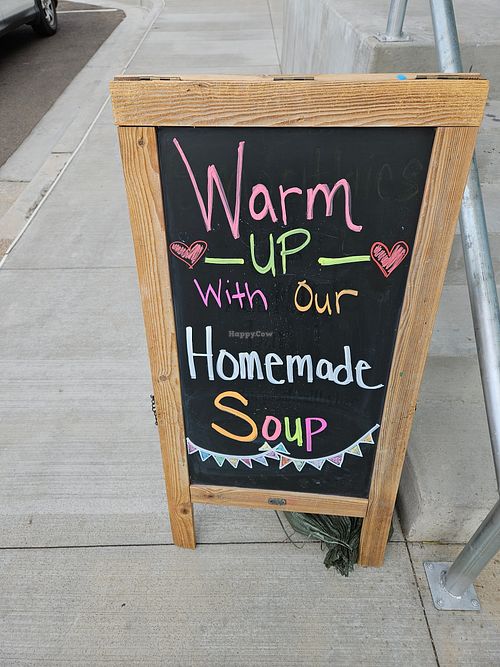 Warm
UP
With Our
HappyCow
Homemade
Soup